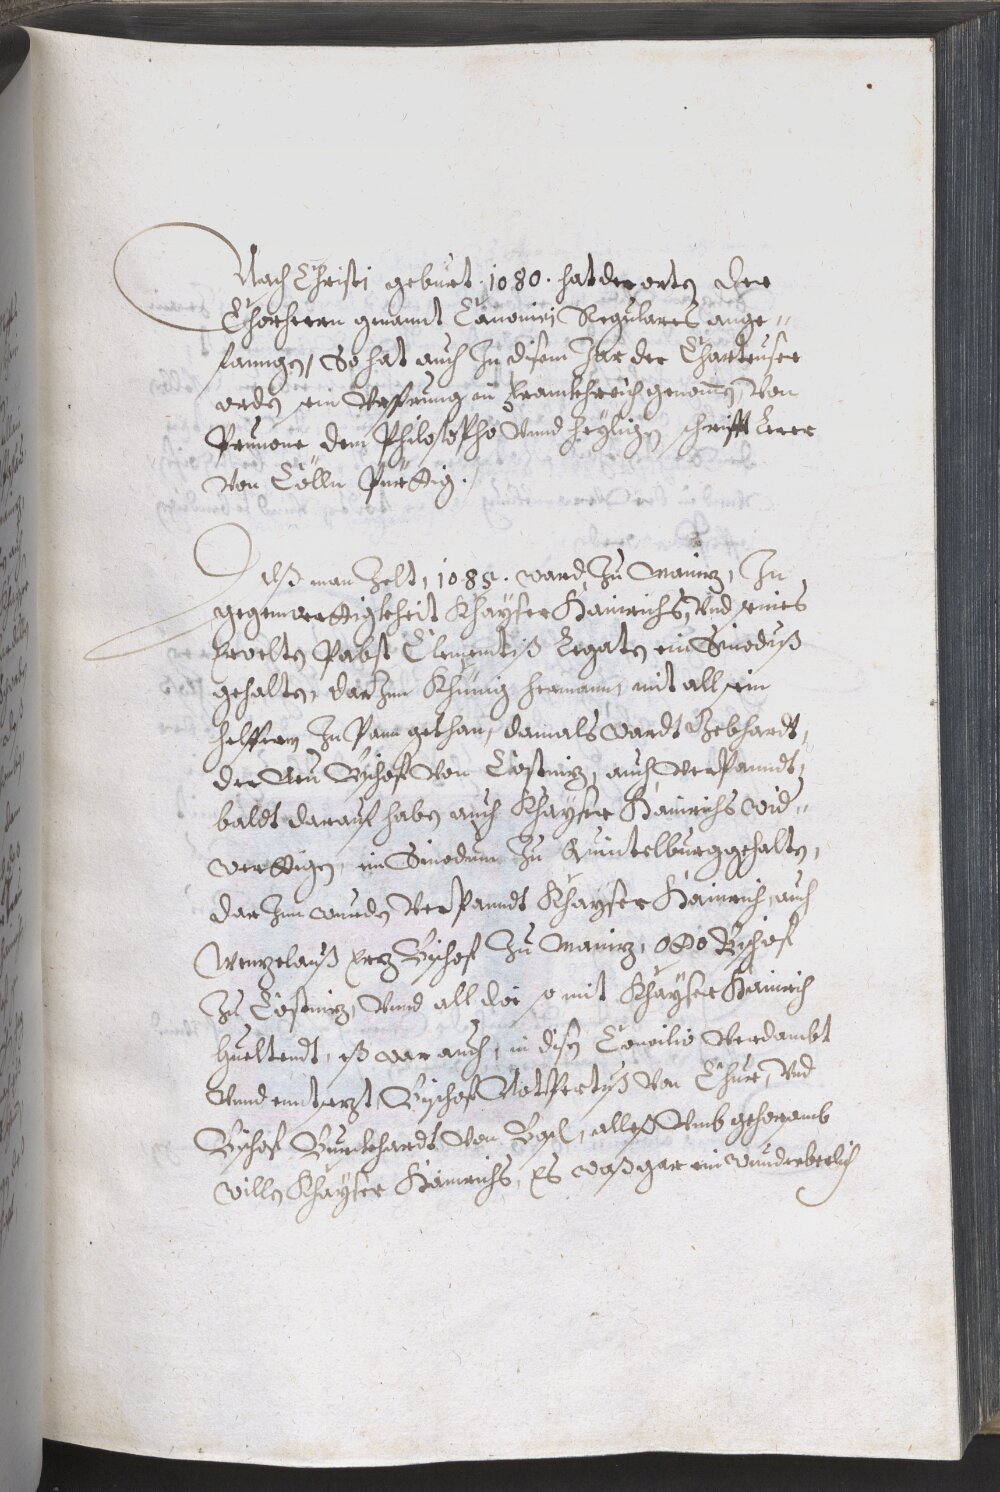 Nach Christi geburt 1080. hat der orden der
Chorherrn genannt Canonici Regulares ange=
fanngen, So hat auch In disem Jar der Chartenser
orden sein Ursprung in Frannkhreich genomen, von
Prunone dem Philosopho unnd heyligen schrifft Lerer
von Cölln pürttig.
Alß man Zelt, 1085. ward Zu Maintz, In
gegenwerttigkheit Khayser Hainrichs, Und seines
Pabst Clementiß Legaten ein Sinoduß
gehalten, darInn Khünig Hermann, mit all sein
helffern In Pann gethan, damals wardt Gebhardt,
der Neu Bischof von Costnitz, auch verpanndt,
baldt darauf haben auch Khayser Hainrichs wid=
werttigen, ein Sinodum Zu Quintelburg gehalten,
darInn wurden verpanndt Khayser Hainrich, auch
Wentzelauß Ertz Bischof Zu Maintz, Otto Bischof
Zu Costnitz, unnd all die so mit Khayser Hainrich
hueltendt, eß war auch, in disen Concilio verdambt
unnd enntsetzt, Bischof Notpertuß von Chur, und
Bischof Burckhardt von Basl, alles umb gehorsamb
willen Khayser Hainrichs, Es waß gar ein wunderberlich